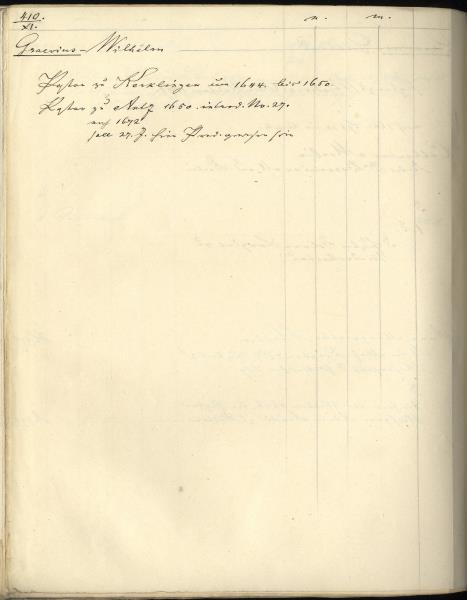 410.
XI.
n. m.
Graevius - Wilhelm
Pastor zu Recklingen um 1644. bis 1650.
Pastor zu 1650. introd. No. 27.
1672
soll 27. J. hier Pred. gewesen sein